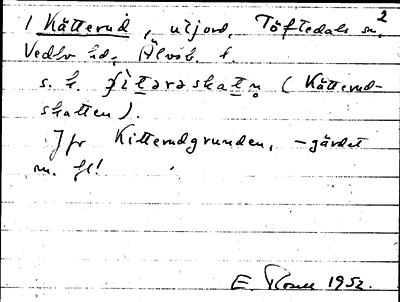 1 Kätterud, utjord, Töftedals sn, 2
Vedbo hd, Älvsb. l.
s. k. ɟìtərəskatn̥ (Kätterud-
skatten).
Jfr Kitterudgrunden, -gärdet
m. fl!
E. 1952.